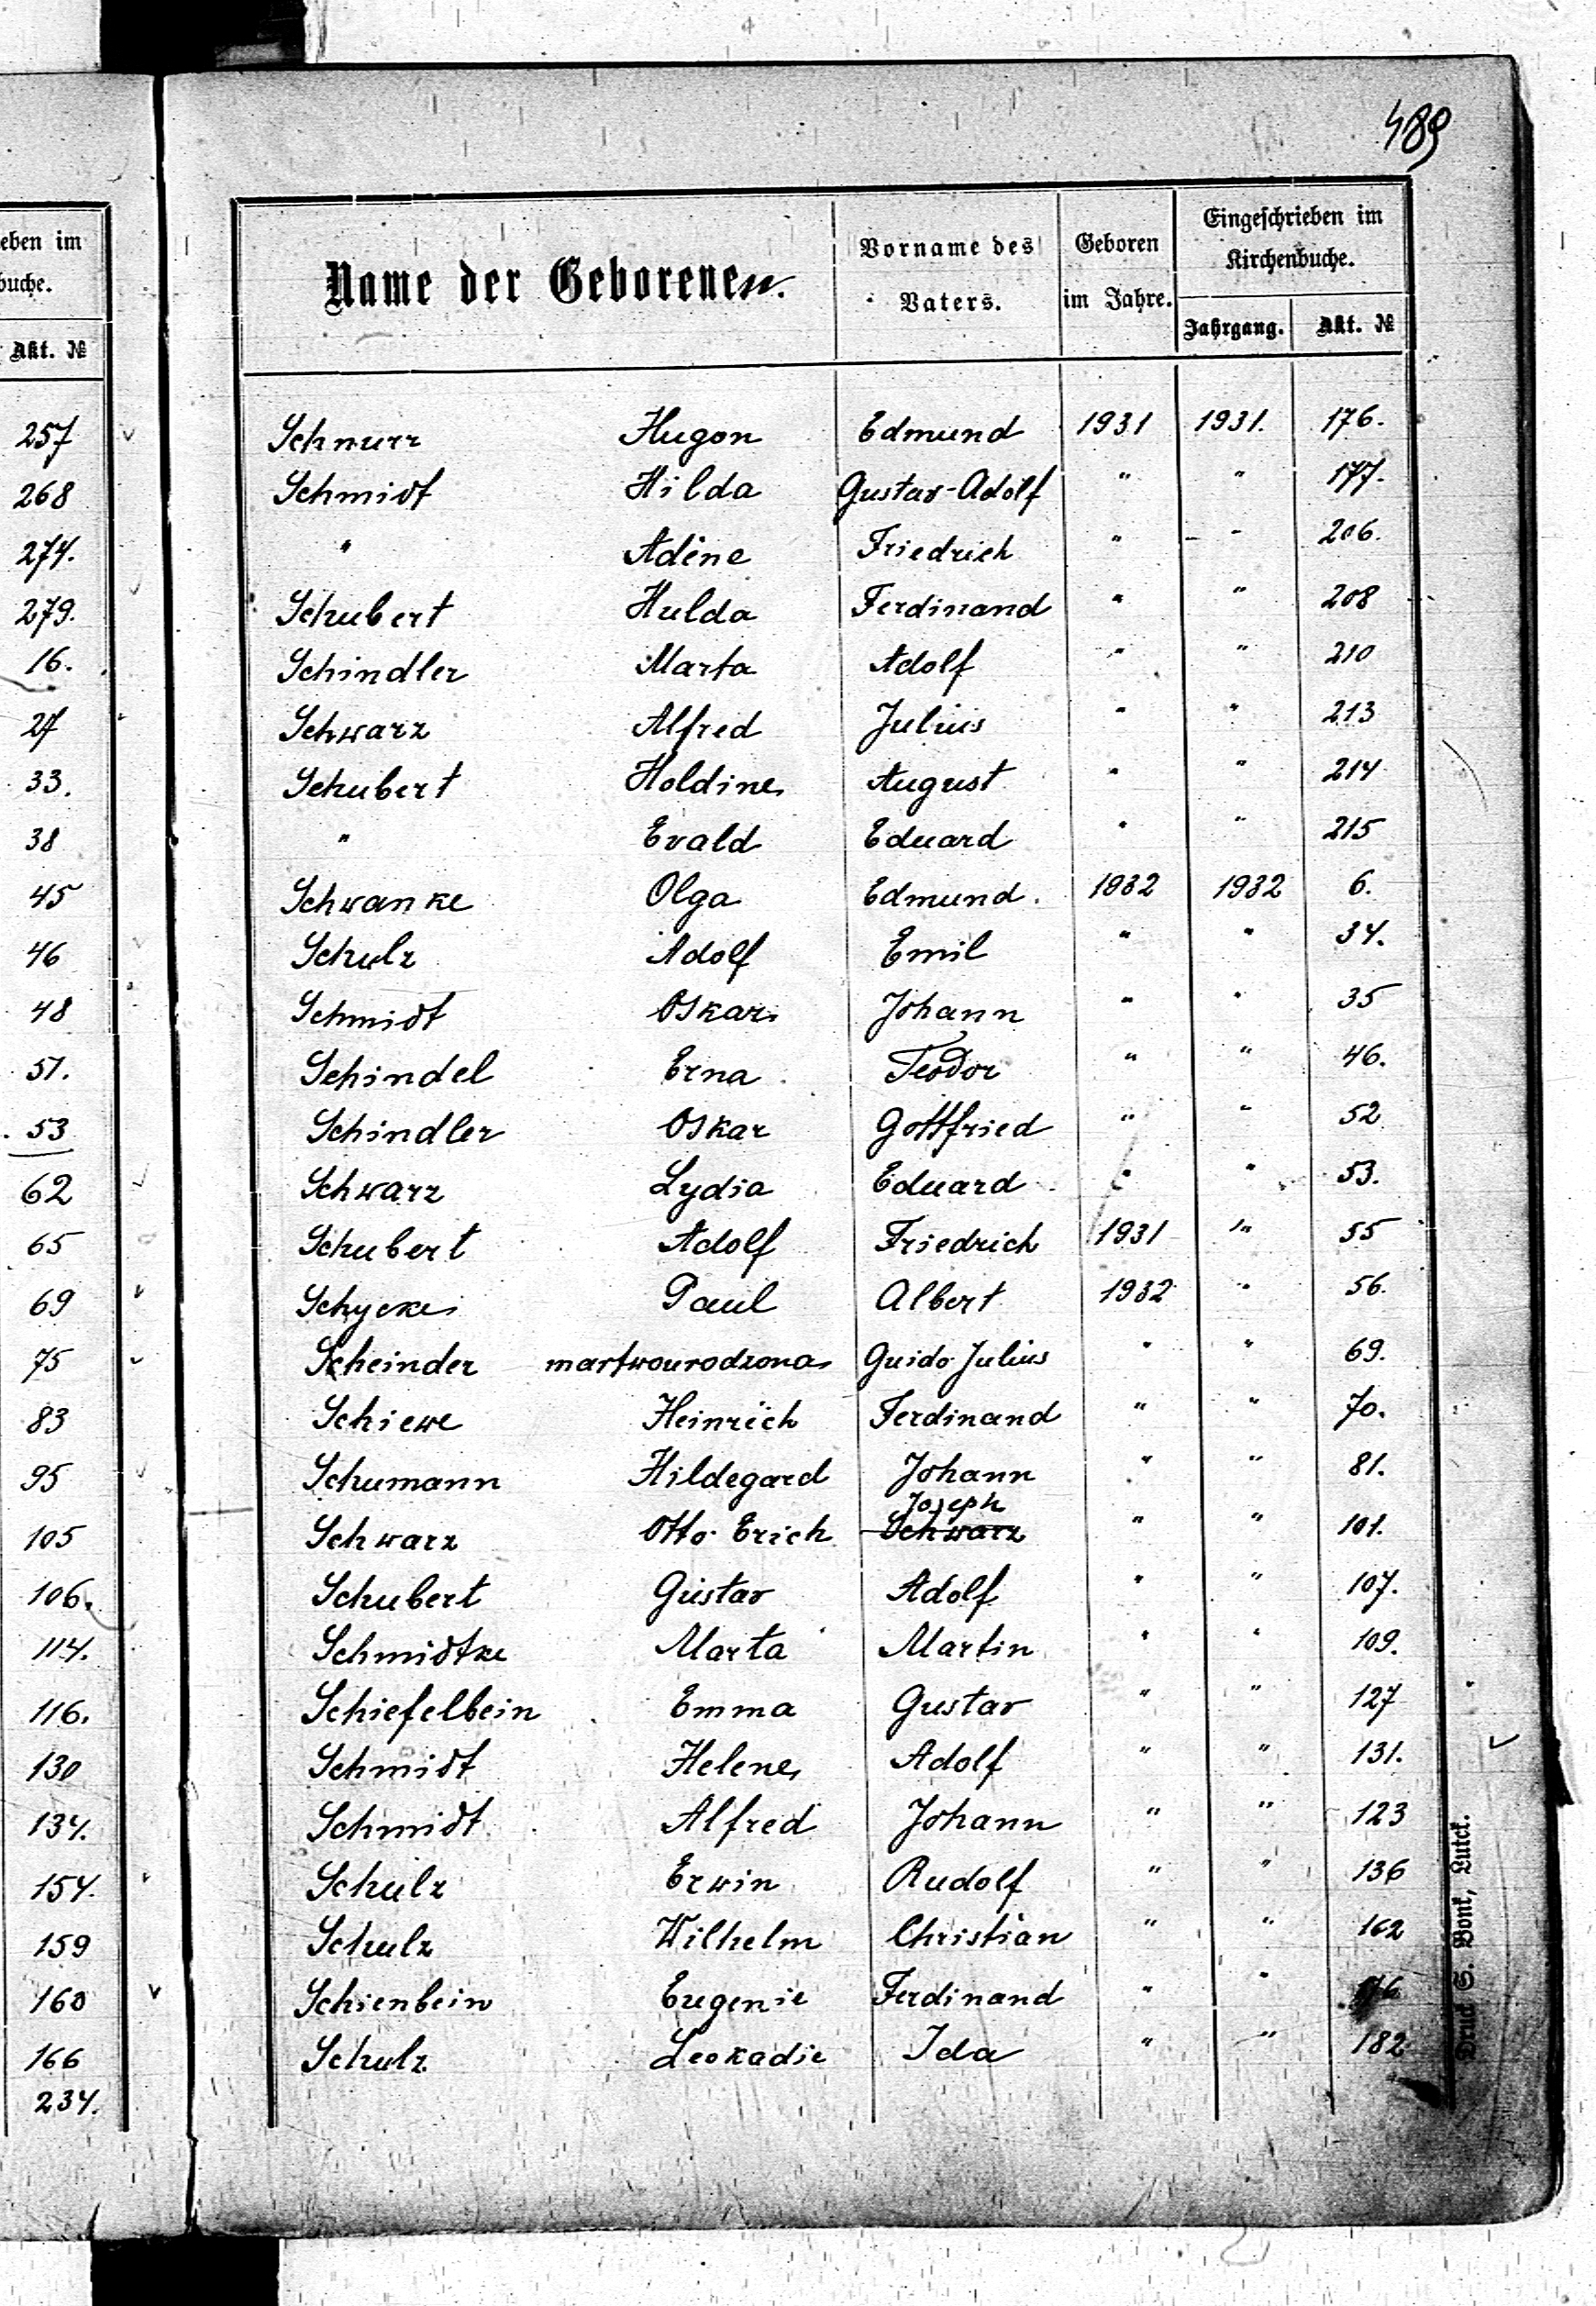 489
eben im
buche.
Akt. №
257
268
274.
279.
16.
27
33.
38
45
46
48
51.
53
62
65
69
75
83
95
105
106.
114.
116.
130
134.
154.
159
160
166
234.
Name der Geborenen. Vorname des Vaters. Geboren im Jahre. Eingeschrieben im Kirchenbuche.
Jahrgang. Akt. №
Schnurr Hugon Edmund 1931 1931. 176.
Schmidt Hilda Gustav-Adolf " " 177.
" Adine Friedrich " - " 206.
Schubert Hulda Ferdinand " " 208
Schindler Marta Adolf " " 210
Schwarz Alfred Julius " " 213
Schubert Holdine August " " 214
" Evald Eduard " " 215
Schwanke Olga Edmund. 1932 1932 6.
Schulz Adolf Emil " " 34.
Schmidt Oskar Johann " " 35
Schindel Erna Teodor " " 46.
Schindler Oskar Gottfried " " 52
Schwarz Lydia Eduard " " 53.
Schubert Adolf Friedrich 1931 " 55
Schycke Paul Albert 1932 " 56.
Scheinder martwourodzona Guido Julius " " 69.
Schiewe Heinrich Ferdinand " " 70.
Schumann Hildegard Johann " " 81.
Joseph
Schwarz Otto Erich Schwarz " " 101.
Schubert Gustav Adolf " " 107.
Schmidtke Marta Martin " " 109.
Schiefelbein Emma Gustav " " 127
Schmidt Helene Adolf " " 131.
Schmidt Alfred Johann " " 123
Schulz Erwin Rudolf " " 136
Schulz Wilhelm Christian " " 162
Schienbein Eugenie Ferdinand " "
Schulz Leokadie Ida " " 182
Druck S. Bonk, Lutck.